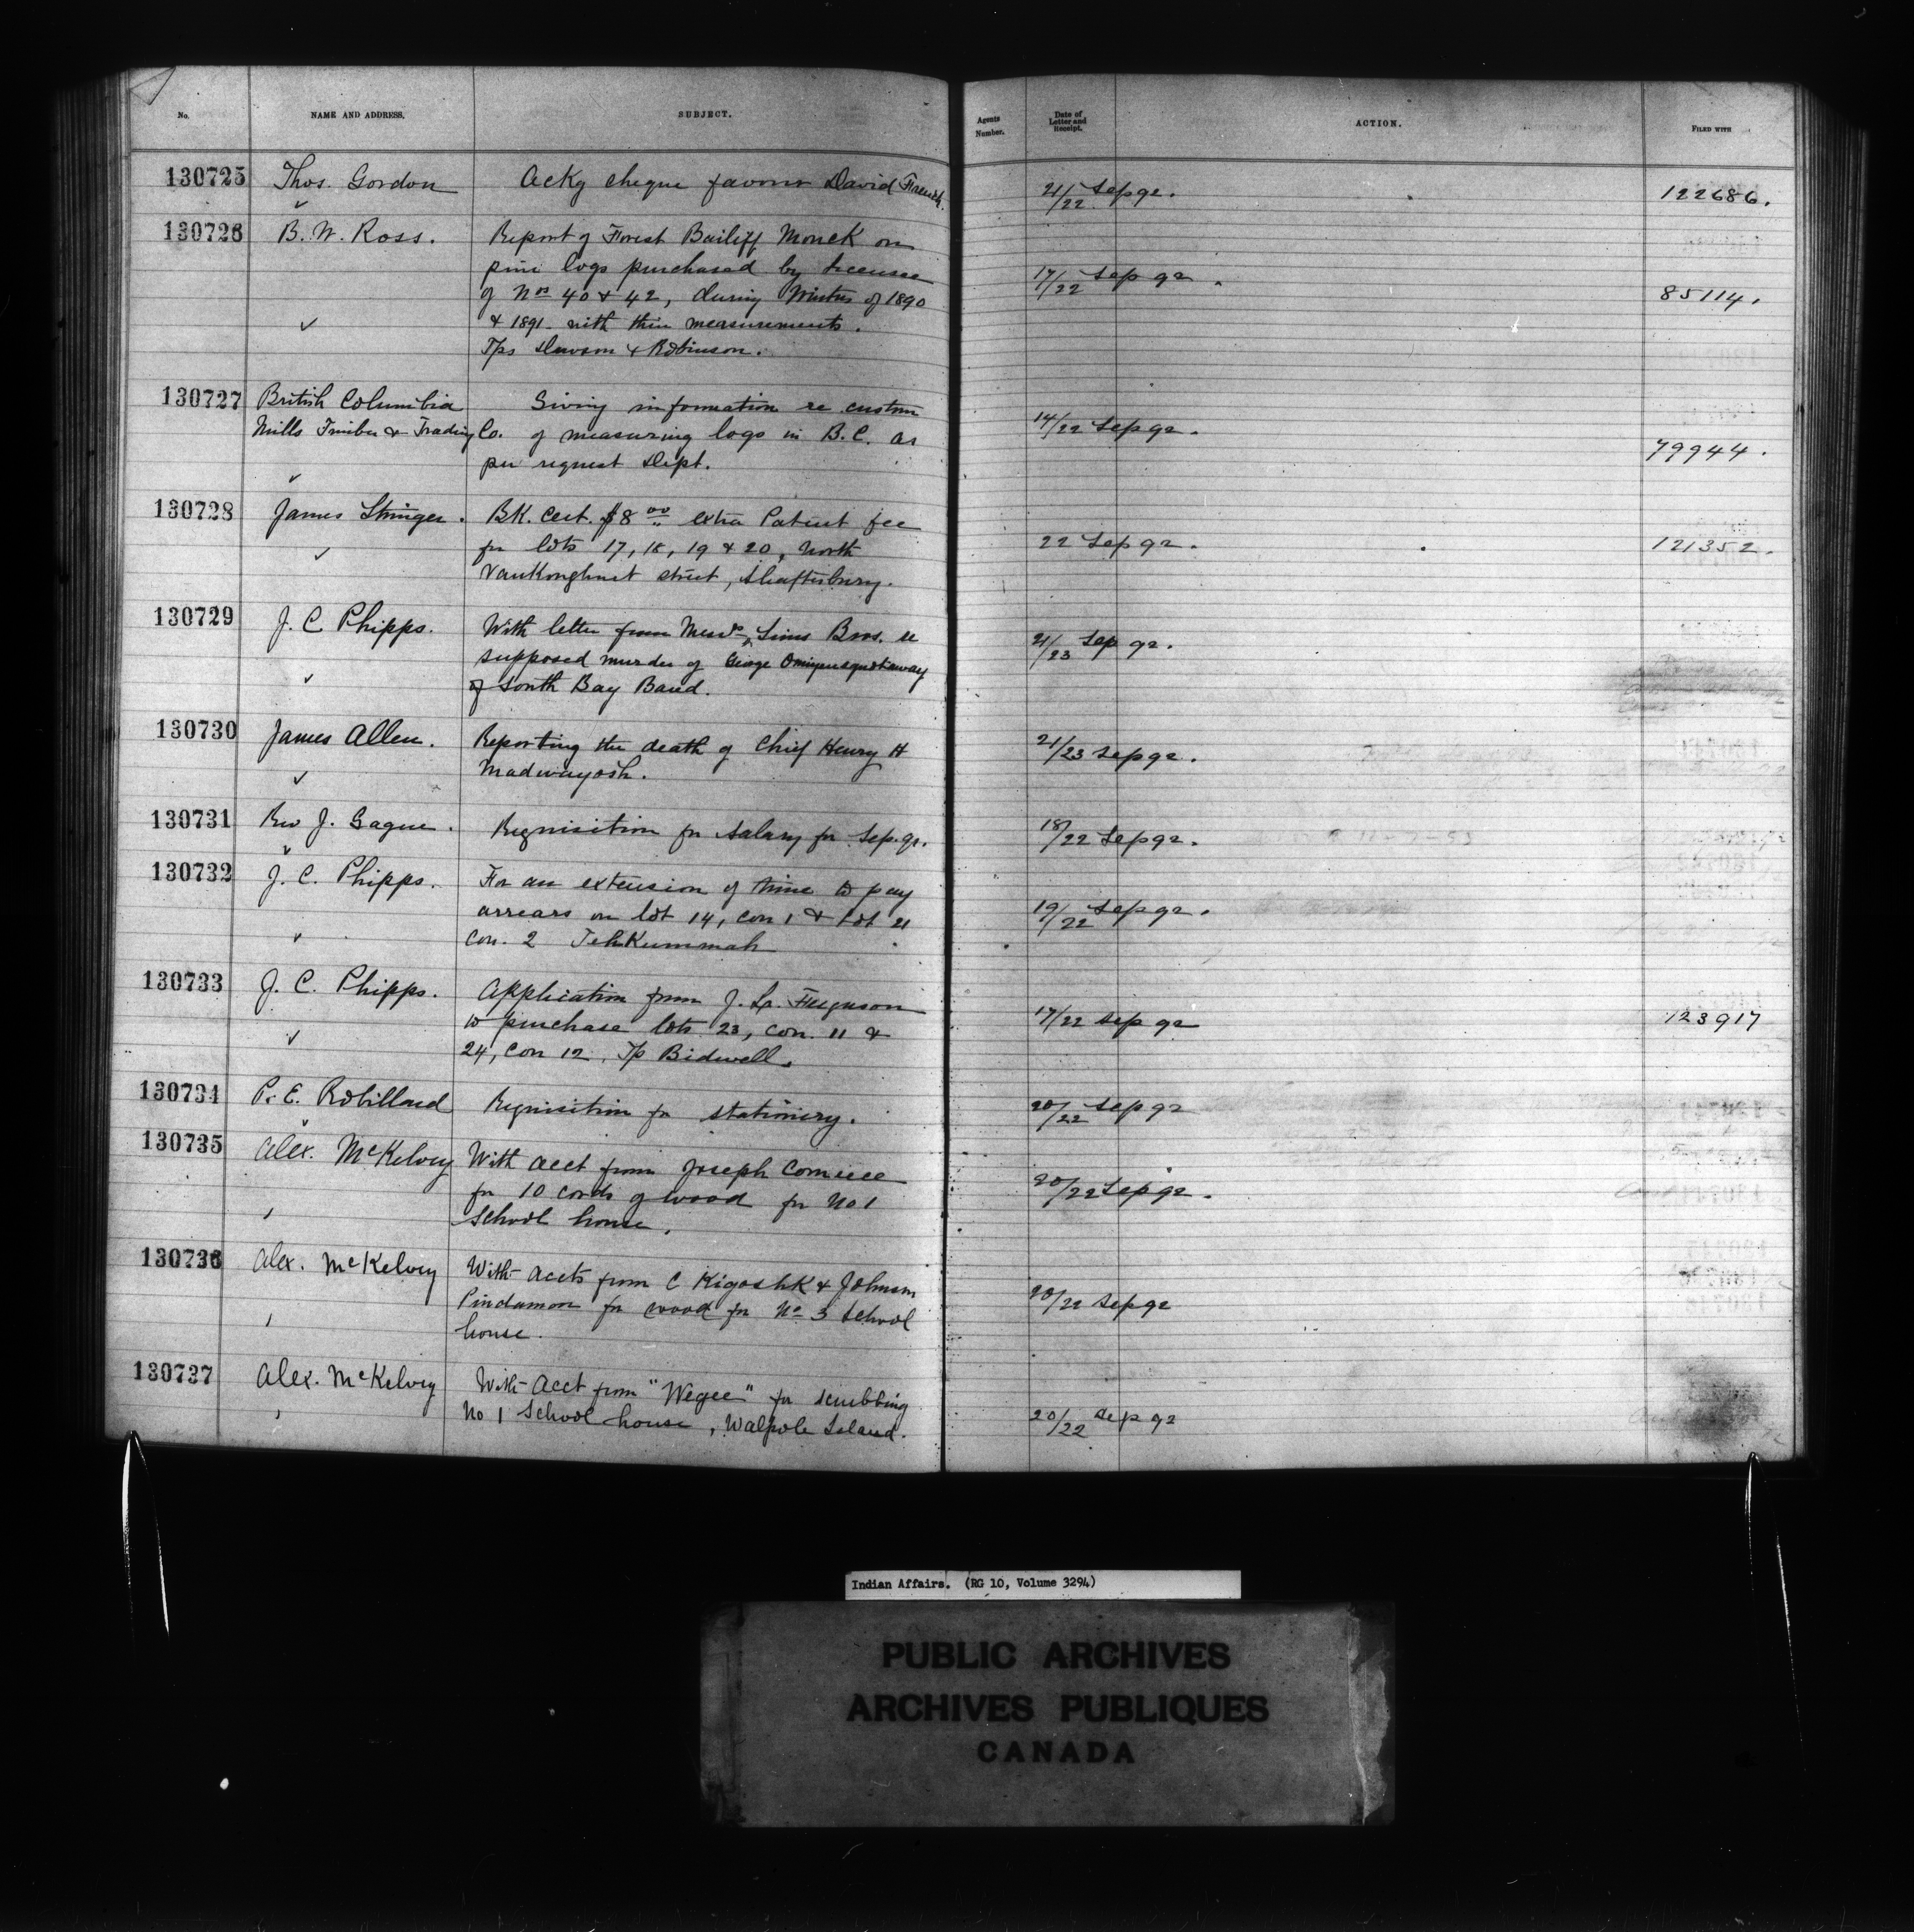 No. NAME AND ADDRESS. SUBJECT. Agents Number. Date of Letter and Receipt. ACTION. FILED WITH
130725 Thos. Gordon Ackg cheque favour David French. 21/22 Sep 92. 122686.
130726 B. W. Ross. Report of Forest Bailiff Monck on
pine logs purchased by licensee 17/22 Sep 92.
of Nos 40 & 42, during Winters of 1890 85114.
& 1891 with their measurements.
Tps Dawson & Robinson.
130727 British Columbia Giving information re custom
Mills Timber & Trading Co. of measuring logs in B.C. as 14/22 Sep 92. 79944.
per request Dept.
130728 James Stringer. BK. Cert. $8 00 extra Patent fee
for lots 17, 18, 19 & 20, North 22 Sep 92. 121352.
VanKoughnet street, Shaftesbury.
130729 J. C. Phipps. With letter from Messrs Sims Bros. re 21/23 Sep 92.
supposed murder of George
of South Bay Band.
130730 James Allen. Reporting the death of Chief Henry H 21/23 Sep 92.
Madwayosh.
130731 Rev J. Gagne. Requisition for salary for Sep. qr. 18/22 Sep 92.
130732 J. C. Phipps. For an extension of time to pay
arrears on lot 14, con 1 & lot 21 19/22 Sep 92.
Con. 2 Tehkummah
130733 J. C. Phipps. Application from J. Ferguson
to purchase lots 23, con. 11 & 17/22 Sep 92 123917
24, con 12, Tp Bidwell.
130734 P. E. Robillard Requisition for stationery. 20/22 Sep 92
130735 Alex. McKelvey With acct from Joseph
for 10 cords of wood for No 1 20/22 Sep 92.
School house.
130736 Alex. McKelvey With accts from C Kigoshk & Johnson
Pindamon for wood for No 3 School 20/22 Sep 92
house.
130737 Alex. McKelvey With acct from "Wegee" for scrubbing
No 1 School house, Walpole Island. 20/22 Sep 92
Indian Affairs. (RG 10, Volume 3294)
PUBLIC ARCHIVES
ARCHIVES PUBLIQUES
CANADA